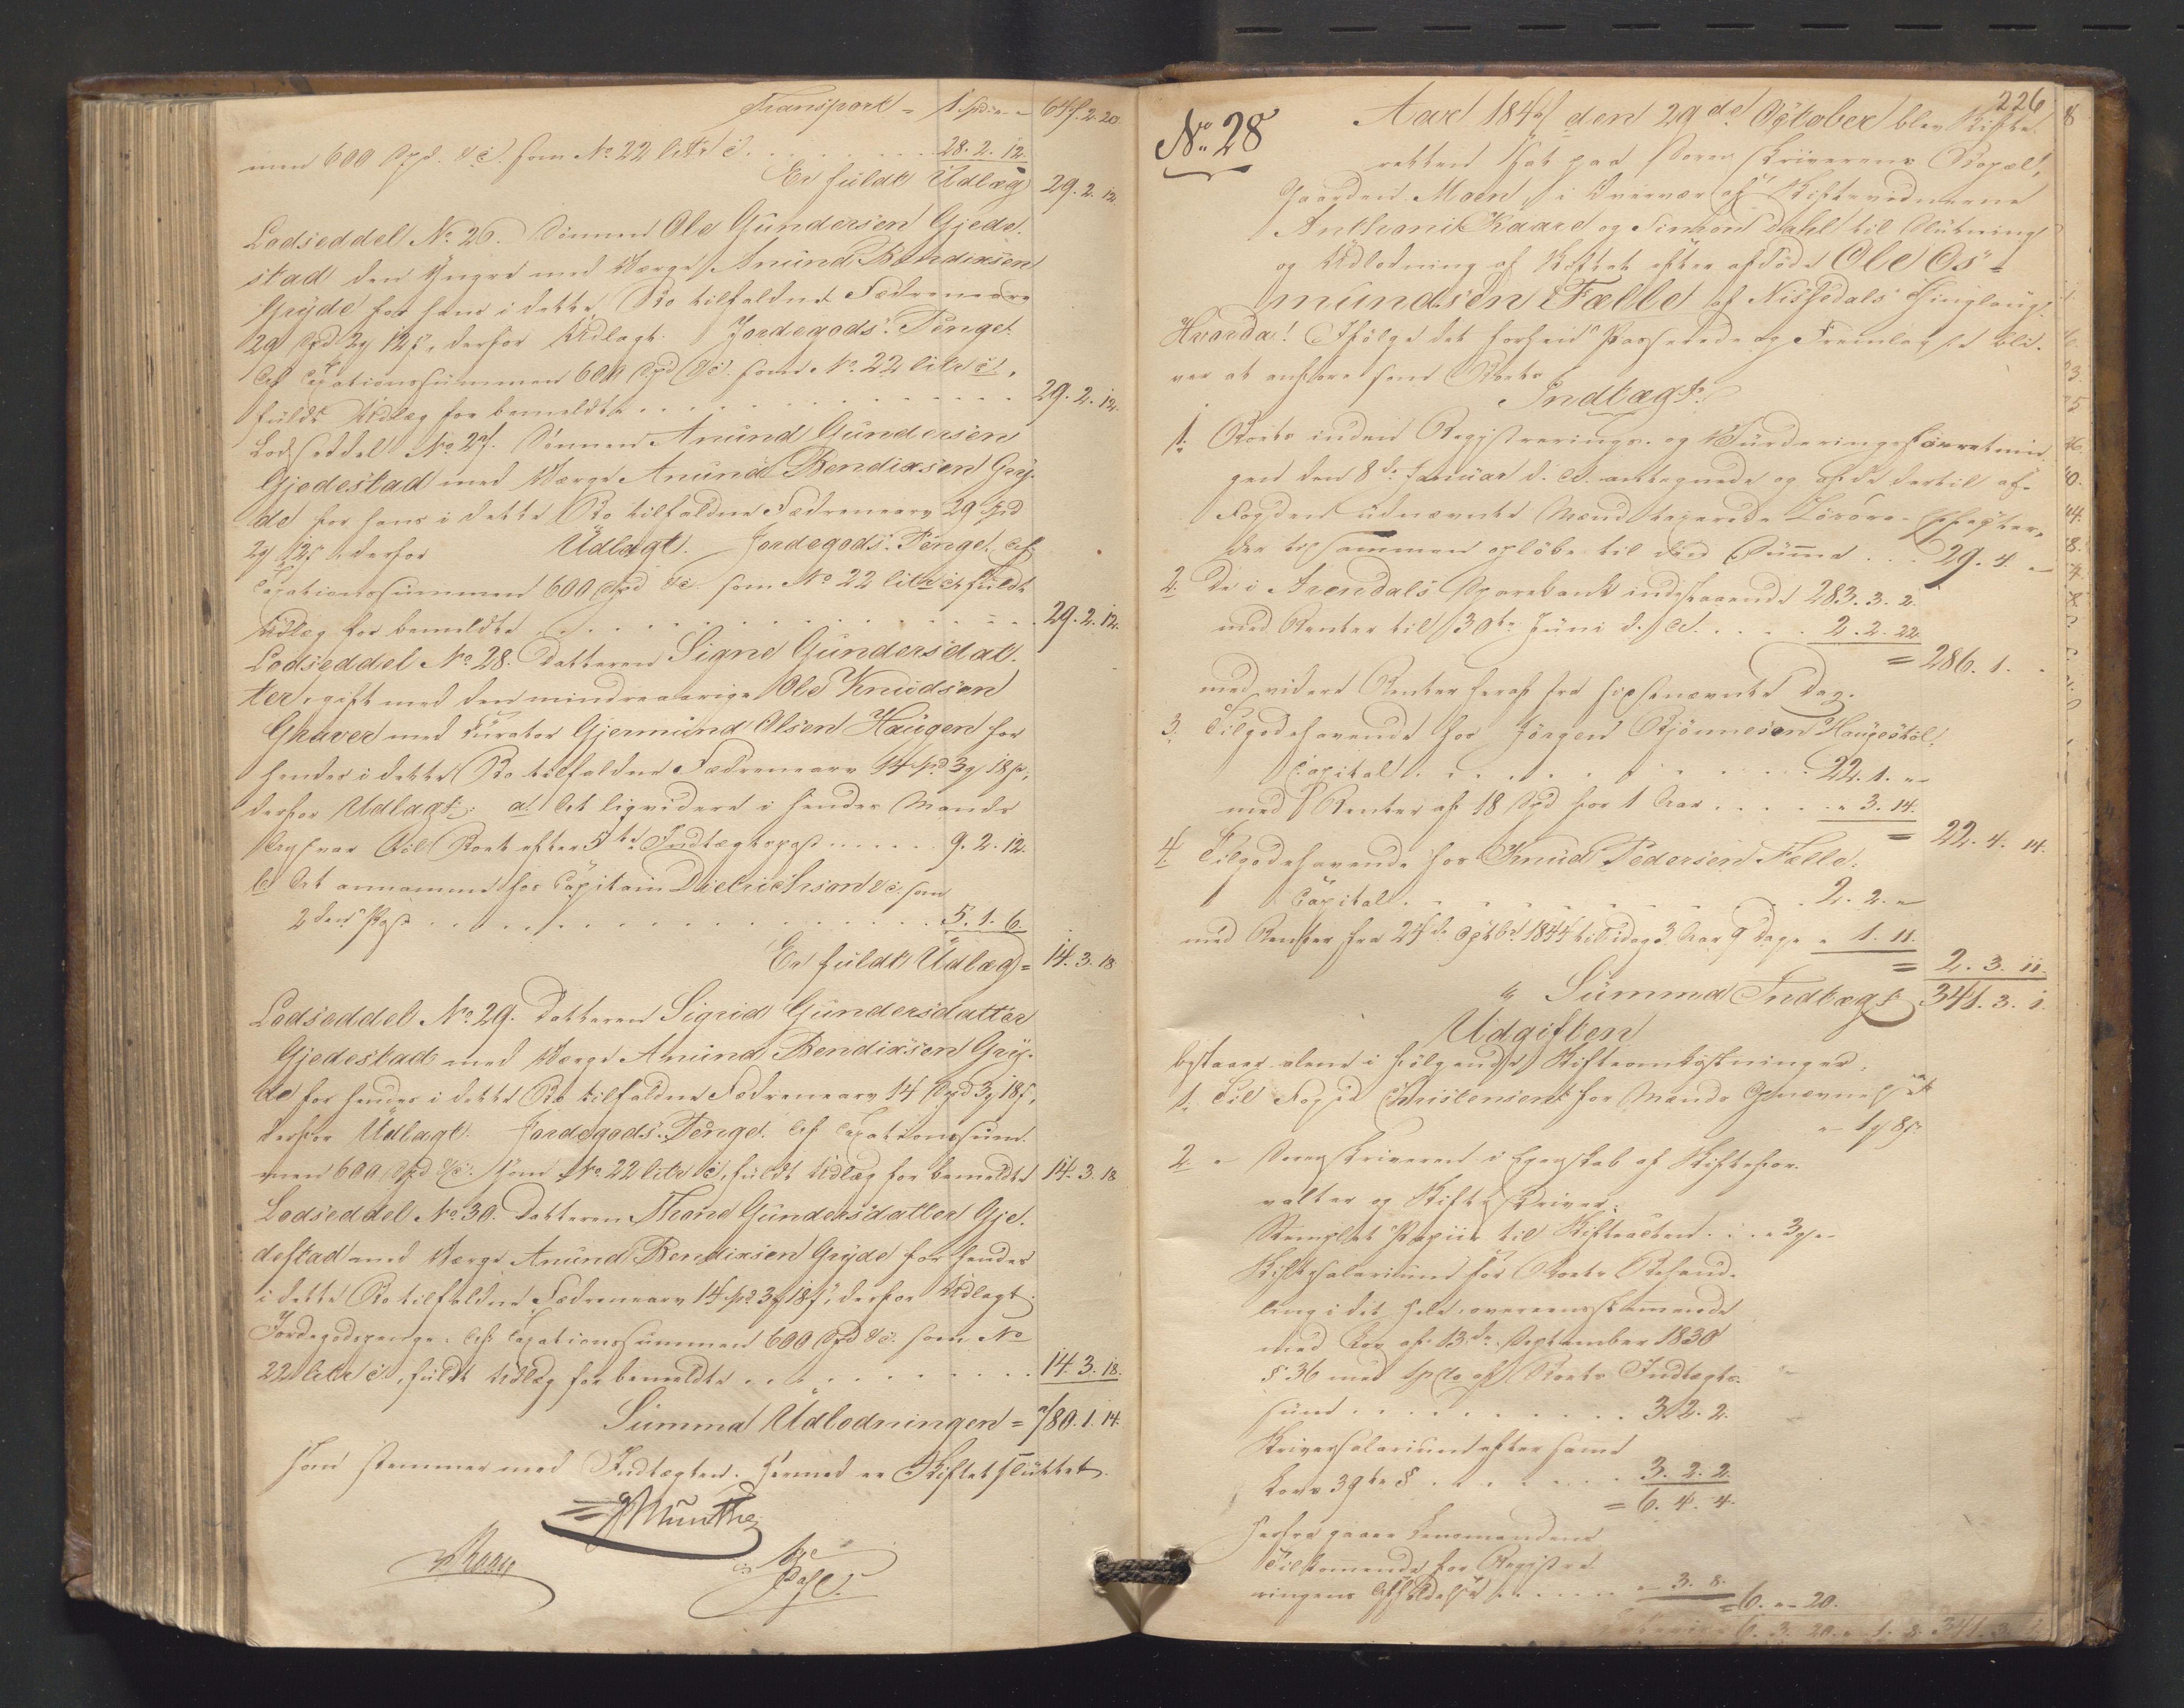 Transport = 1 spd: „ „ 648. 2. 20.
men 600 Spd. &c. som No. 22 litr c. . . . 28. 2. 12.
Er fuldt Udlæg 29. 2. 12.
Lodseddel No. 26. Sönnen Ole Gundersen Gjede-
stad den Yngre med Værge Anund Bendixsen
Gryde for hans i dette Bo tilfaldne Fædrenearv
29 Spd 2 12 s, derfor Udlagt. Jordegods-Penge.
Af Taxationssummen 600 Spd &c. som No. 22 litr c.,
fuldt Udlæg for bemeldte . . . 29. 2. 12.
Lodseddel No. 27. Sönnen Anund Gundersen
Gjedestad med Værge Anund Bendixsen Gry-
de for hans i dette Bo tilfaldne Fædrenearv 29 Spd
2 12 s, derfor Udlagt. Jordegods-Penge. Af
Taxationssummen 600 Spd &c. som No. 22 litr c. fuldt
Udlæg for bemeldte . . . 29. 2. 12.
Lodseddel No. 28. Datteren Signe Gundersdat-
ter, gift med den mindreaarige Ole Knudsen
Ghaver med Curator Gjermund Olsen Haugen for
hendes i dette Bo tilfaldne Fædrenearv 14 spd 3 18 s,
derfor Udlagt: a. Det liqvidere i hendes Mands
Ansvar til Boet efter 5te Indtægtspost . . . 9. 2. 12.
b. Det annammer hos Capitain Dietrichson &c. som
2den Post . . . 5. 1. 6.
Er fuldt Udlæg = 14. 3. 18
Lodseddel No. 29. Datteren Sigrid Gundersdatter
Gjedestad med Værge Anund Bendixsen Gry-
de for hendes i dette Bo tilfaldne Fædrenearv 14 Spd 3 18 s,
derfor Udlagt. Jordegods-Penge. Af Taxationssum-
men 600 Spd &c. som No. 22 litr c., fuldt Udlæg for bemeldte 14. 3. 18
Lodseddel No. 30. Datteren Thone Gundersdatter Gje-
destad med Værge Anund Bendixsen Gryde for hendes
i dette Bo tilfaldne Fædrenearv 14 spd 3 18 s, derfor Udlagt:
Jordegodspenge. Af Taxationssummen 600 Spd &c. som No
22 litr c., fuldt Udlæg for bemeldte . . . 14. 3. 18.
Summa Udlodningen = 780. 1. 14.
som stemmer med Indtægten. Hermed er Skiftet sluttet.
Munthe
226
No. 28
Aar 1847 den 29de October blev Skifte-
retten sat paa Sorenskriverens Bopæl,
Gaarden Moen, i Overvær af Skiftevidnerne
Anthoni Kaare og Simon Dahl til Slutning
og Udlodning af Skiftet efter afdöde Ole Os-
mundsen Fælle af Nissedals Thinglaug.
Hvorda! Ifölge det forhen Passerede og Fremlagte bli-
ver at anföre som Boets
Indtægt:
1. Boets under Registrerings- og Vurderingsforretnin-
gen den 8de Januar d. A. antegnede og af de dertil af
Fogden udnævnte Mænd taxerede Lösöre-Effecter,
der tilsammen oplöbe til den Summa . . . 29. 4. „
2. De i Arendals Sparebank indestaaende 283. 3. 2.
med Renter til 30te Juni d. A. . . . 2. 2. 22.
= 286. 1. „
med videre Renter heraf fra sidstnævnte Dag.
3. Tilgodehavende hos Jörgen Bjönnesen Haugestöl,
Capital . . . 22. 1. „
med Renter af 18 Spd for 1 Aar . . . „ 3. 14.
= 22. 4. 14.
4. Tilgodehavende hos Knud Pedersen Fælle.
Capital . . . 2. 2. „
med Renter fra 20de Octbr 1844 til idag 3 Aar 9 Dage „ 1. 11.
= 2. 3. 11.
Summa Indtægt 341. 3. 1.
Udgiften
bestaaer alene i fölgende Skifteomkostninger,
1. Til Foged Christensen for Mænds Opnævnelse
„ 1 8 s.
2. „ Sorenskriveren i Egenskab af Skiftefor-
valter og Skifteskriver:
Stemplet Papiir til Skifteacten . . . „ 3 „
Skiftesalarium for Boets Behand-
ling i det Hele, overeensstemmende
med Lov af 13de September 1830
§ 36 med 1 pCto af Boets Indtægts-
sum . . . 3. 2. 2.
Skriversalarium efter samme
Lovs 39te § . . . 3. 2. 2.
= 6. 4. 4.
Herfra gaaer Lensmandens
Tilkommende for Registre-
ringens Afholdelse . . . „ 3. 8.
= 6. „ 20.
6. 3. 20. „ 1. 8. 341. 3. 1.